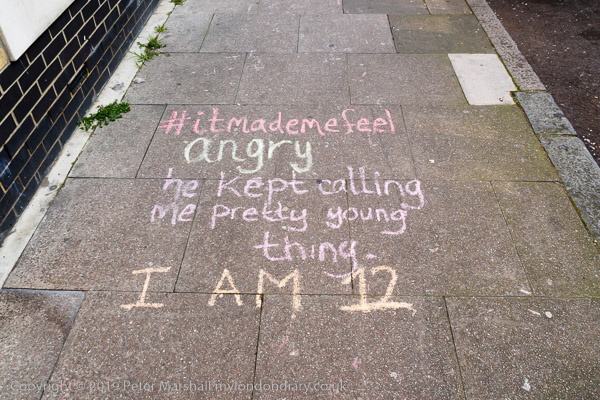 #itmademefeel
angry
he kept calling
me pretty young
thing.
I AM 12
Copyright © 2019 Peter Marshall mylondondiary.co.uk